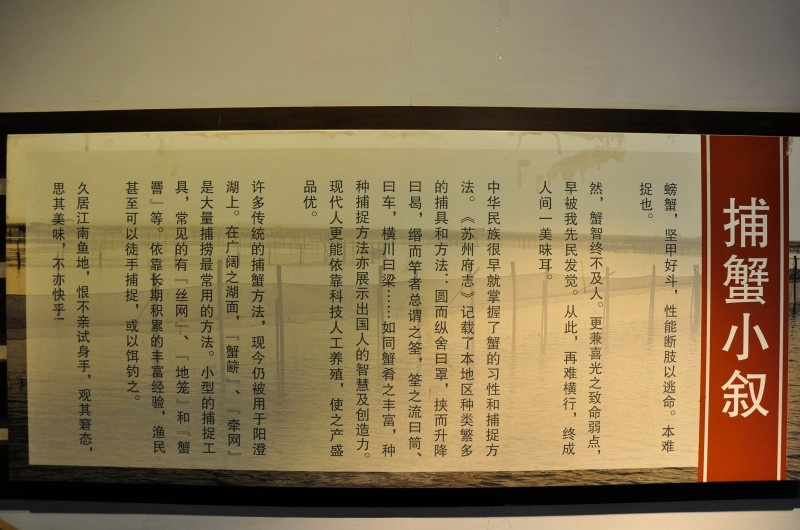 捕蟹小叙
螃蟹，坚甲好斗，性能断肢以逃命。本难
捉也。
然，蟹智终不及人。更兼喜光之致命弱点，
早被我先民发觉。从此，再难横行，终成
人间一美味耳。
中华民族很早就掌握了蟹的习性和捕捉方
法。《苏州府志》记载了本地区种类繁多
的捕具和方法：圆而纵舍曰罩，挟而升降
曰曷，缗而竿者总谓之筌，筌之流曰筒、
曰车，横川曰梁……如同蟹肴之丰富，种
种捕捉方法亦展示出国人的智慧及创造力。
现代人更能依靠科技人工养殖，使之产盛
品优。
许多传统的捕蟹方法，现今仍被用于阳澄
湖上。在广阔之湖面，『蟹簖』、『牵网』
是大量捕捞最常用的方法。小型的捕捉工
具，常见的有『丝网』、『地笼』和『蟹
罾』等。依靠长期积累的丰富经验，渔民
甚至可以徒手捕捉，或以饵钓之。
久居江南鱼地，恨不亲试身手，观其窘态，
思其美味，不亦快乎！